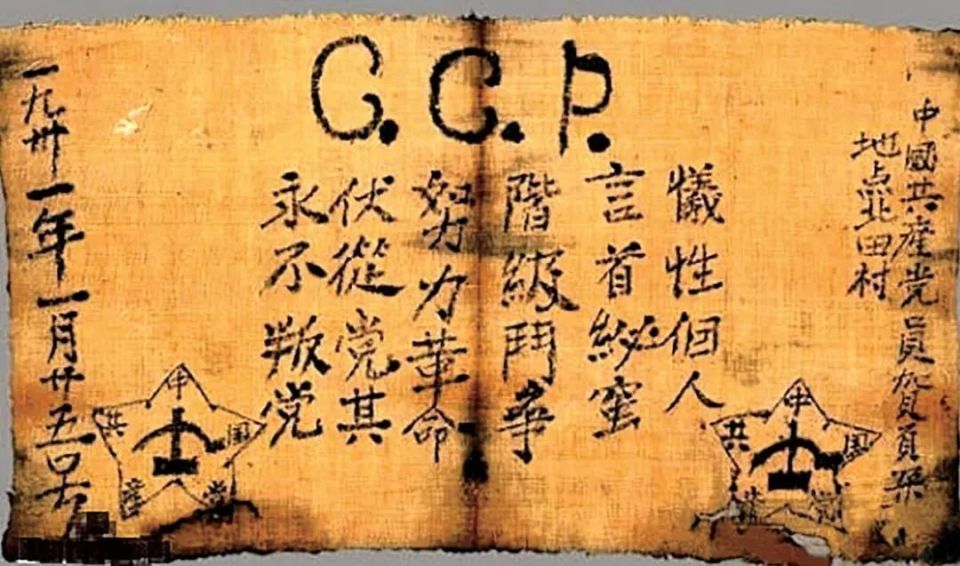 C.C.P.
中國共產党員賀頁朶
地点北田村
犠性個人
言首秘蜜
階級鬥争
努力革命
伏從党其
永不叛党
一九卅一年一月廿五
中国共産党
中国共産党